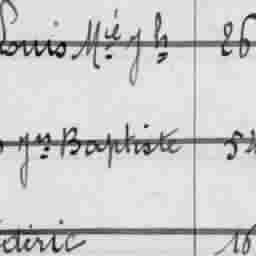 Louis Mié Jh 26
Jn Baptiste 54
édéric 16